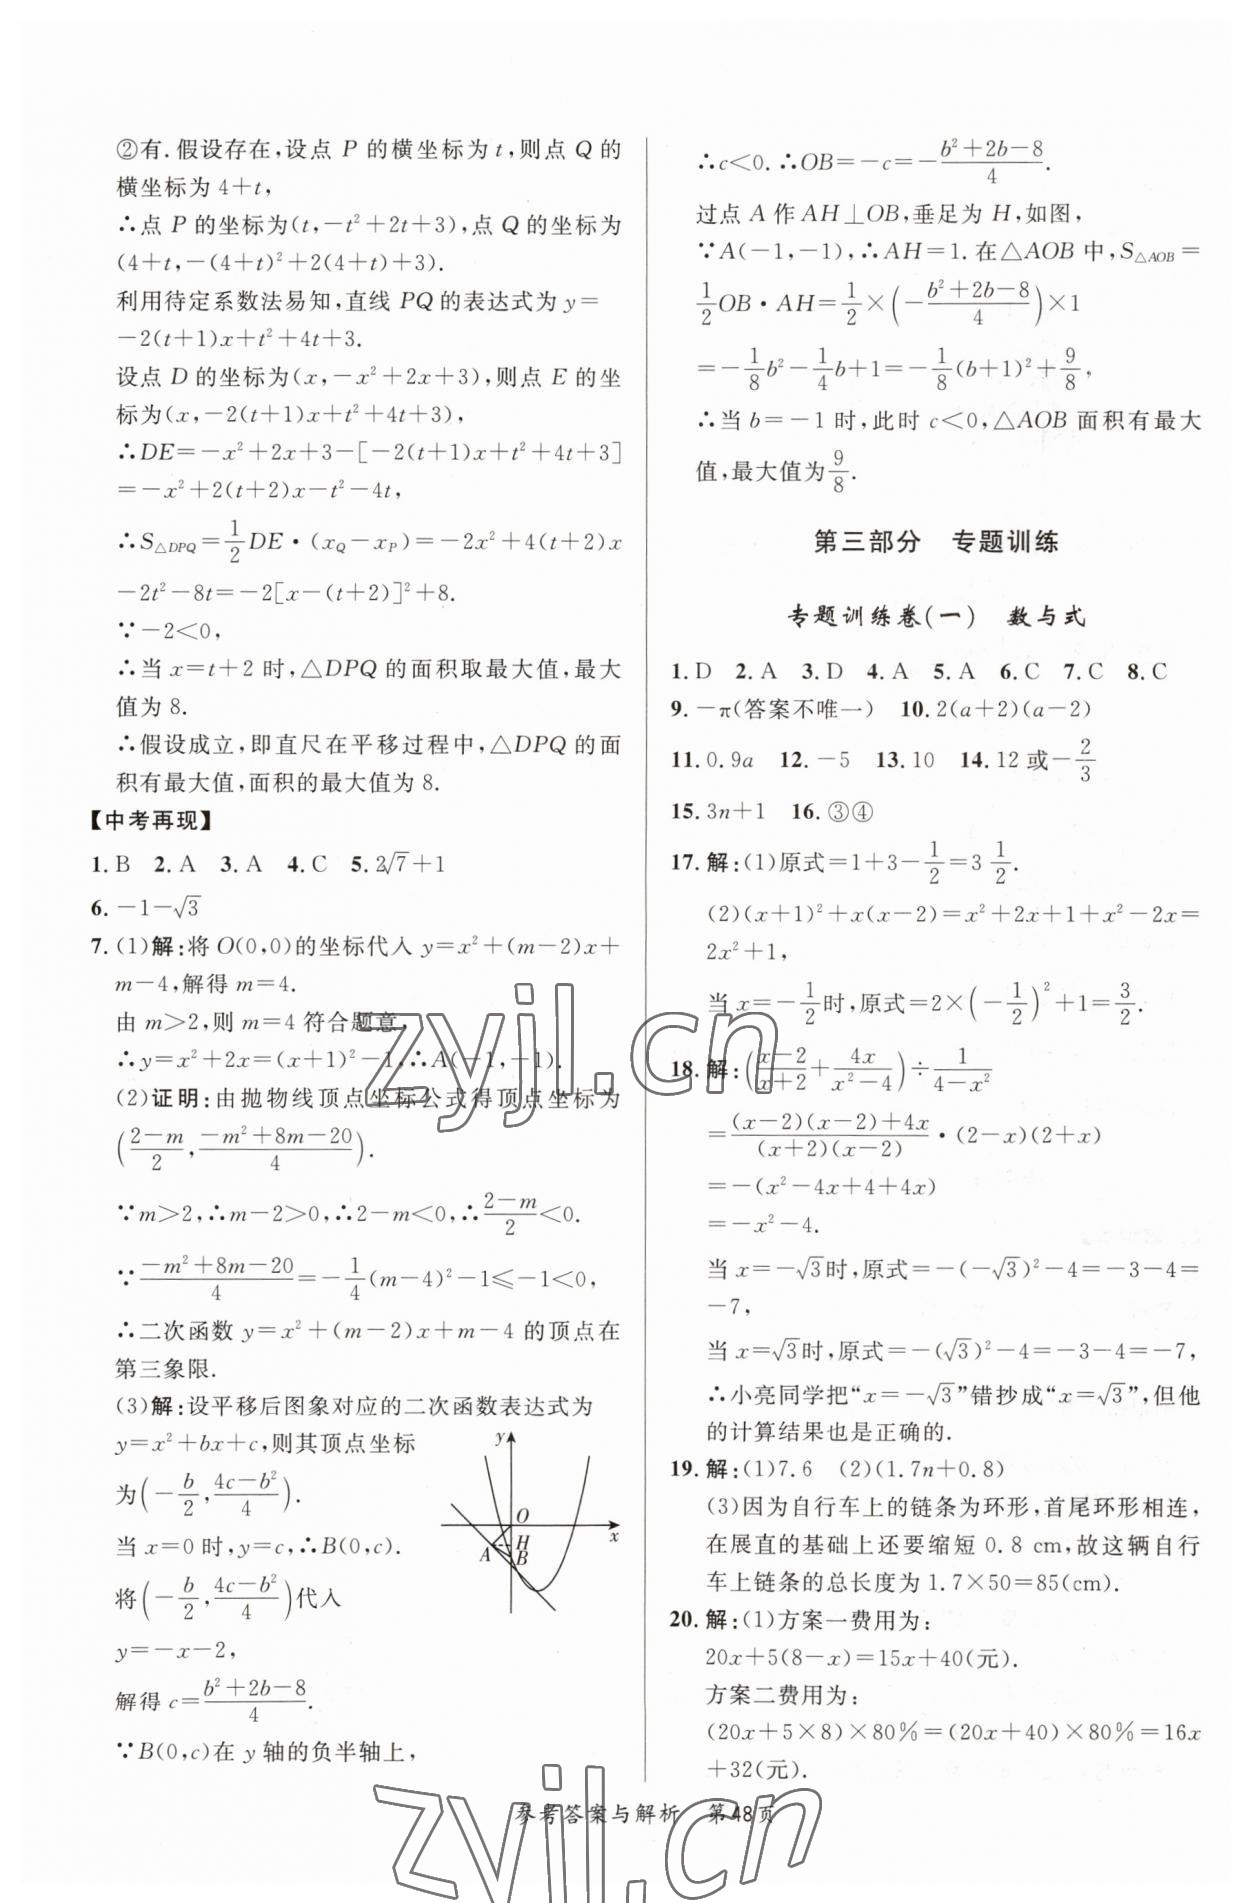 ②有.假设存在,设点 P 的横坐标为 t,则点 Q 的
横坐标为 4+t,
∴点 P 的坐标为(t,-t²+2t+3),点 Q 的坐标为
(4+t,-(4+t)²+2(4+t)+3).
利用待定系数法易知,直线 PQ 的表达式为 y=
-2(t+1)x+t²+4t+3.
设点 D 的坐标为(x,-x²+2x+3),则点 E 的坐
标为(x,-2(t+1)x+t²+4t+3),
∴DE=-x²+2x+3-[-2(t+1)x+t²+4t+3]
=-x²+2(t+2)x-t²-4t,
∴S△DPQ=1/2DE·(xQ-xP)=-2x²+4(t+2)x
-2t²-8t=-2[x-(t+2)]²+8.
∵-2<0,
∴当 x=t+2 时,△DPQ 的面积取最大值,最大
值为 8.
∴假设成立,即直尺在平移过程中,△DPQ 的面
积有最大值,面积的最大值为 8.
【中考再现】
1. B 2. A 3. A 4. C 5. 2√7+1
6. -1-√3
7. (1)解:将 O(0,0)的坐标代入 y=x²+(m-2)x+
m-4,解得 m=4.
由 m>2,则 m=4 符合题意,
∴y=x²+2x=(x+1)²-1,∴A(-1,-1).
(2)证明:由抛物线顶点坐标公式得顶点坐标为
((2-m)/2,(-m²+8m-20)/4).
∵m>2,∴m-2>0,∴2-m<0,∴(2-m)/2<0.
∵(-m²+8m-20)/4=-1/4(m-4)²-1≤-1<0,
∴二次函数 y=x²+(m-2)x+m-4 的顶点在
第三象限.
(3)解:设平移后图象对应的二次函数表达式为
y=x²+bx+c,则其顶点坐标
为(-b/2,(4c-b²)/4).
当 x=0 时,y=c,∴B(0,c).
将(-b/2,(4c-b²)/4)代入
y=-x-2,
解得 c=(b²+2b-8)/4.
∵B(0,c)在 y 轴的负半轴上,
y
O
x
H
A
B
∴c<0.∴OB=-c=-(b²+2b-8)/4.
过点 A 作 AH⊥OB,垂足为 H,如图,
∵A(-1,-1),∴AH=1.在△AOB 中,S△AOB=
1/2OB·AH=1/2×(-(b²+2b-8)/4)×1
=-1/8b²-1/4b+1=-1/8(b+1)²+9/8,
∴当 b=-1 时,此时 c<0,△AOB 面积有最大
值,最大值为9/8.
第三部分 专题训练
专题训练卷(一) 数与式
1. D 2. A 3. D 4. A 5. A 6. C 7. C 8. C
9. -π(答案不唯一) 10. 2(a+2)(a-2)
11. 0.9a 12. -5 13. 10 14. 12或-2/3
15. 3n+1 16. ③④
17. 解:(1)原式=1+3-1/2=3 1/2.
(2)(x+1)²+x(x-2)=x²+2x+1+x²-2x=
2x²+1,
当 x=-1/2时,原式=2×(-1/2)²+1=3/2.
18. 解:((x-2)/(x+2)+4x/(x²-4))÷1/(4-x²)
=((x-2)(x-2)+4x)/((x+2)(x-2))·(2-x)(2+x)
=-(x²-4x+4+4x)
=-x²-4.
当 x=-√3时,原式=-(-√3)²-4=-3-4=
-7,
当 x=√3时,原式=-(√3)²-4=-3-4=-7,
∴小亮同学把“x=-√3”错抄成“x=√3”,但他
的计算结果也是正确的.
19. 解:(1)7.6 (2)(1.7n+0.8)
(3)因为自行车上的链条为环形,首尾环形相连,
在展直的基础上还要缩短 0.8 cm,故这辆自行
车上链条的总长度为 1.7×50=85(cm).
20. 解:(1)方案一费用为:
20x+5(8-x)=15x+40(元).
方案二费用为:
(20x+5×8)×80%=(20x+40)×80%=16x
+32(元).
参考答案与解析 第48页
zyjl.cn
zyjl.cn